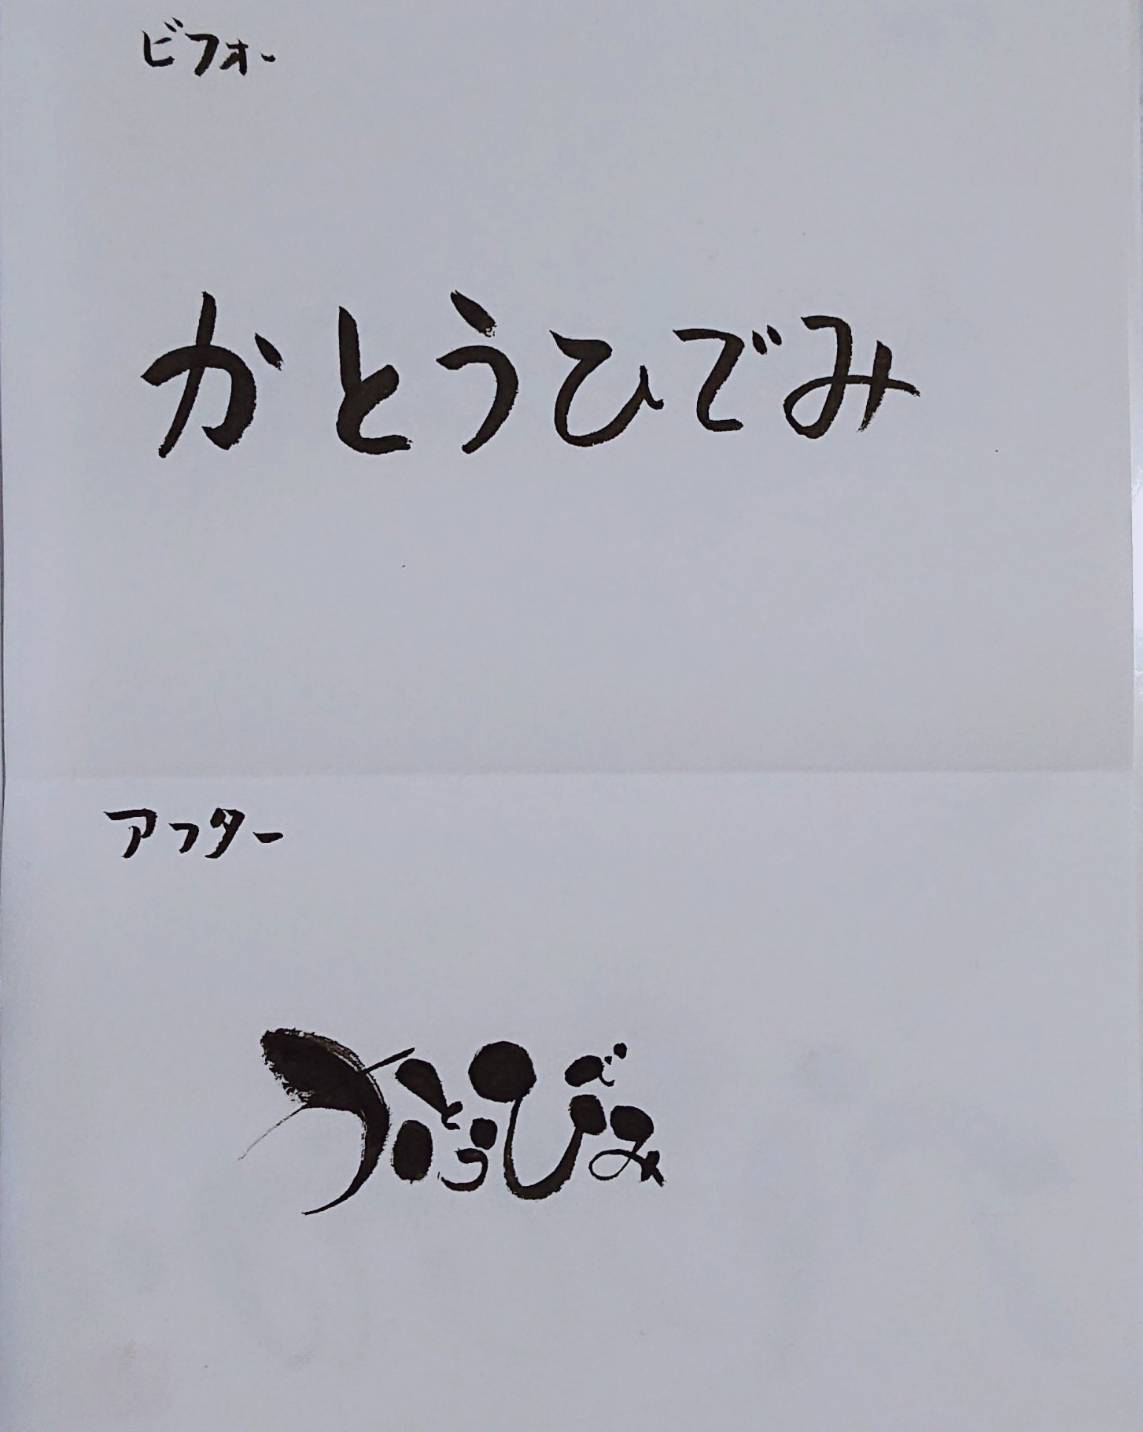 ビフォー
かとうひでみ
アフター
かとうひでみ